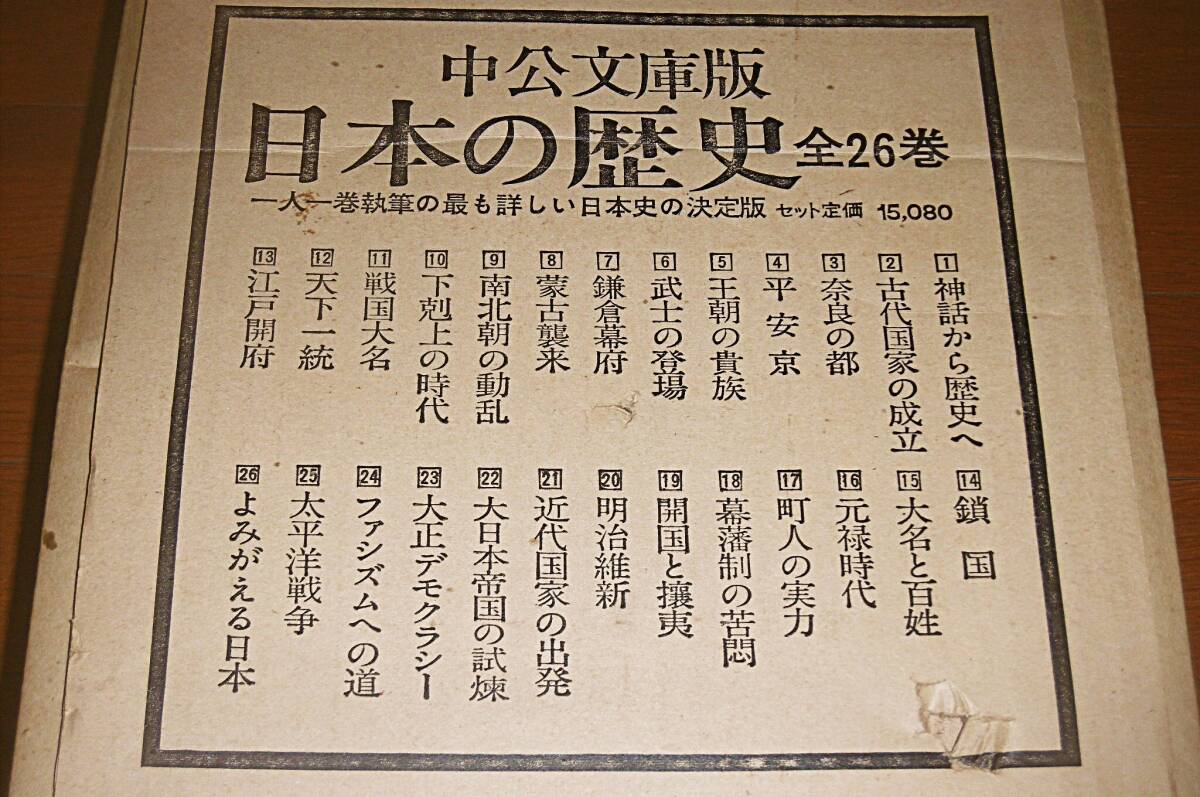 中公文庫版
日本の歴史 全26巻
一人一巻執筆の最も詳しい日本史の決定版 セット定価 15,080
1 神話から歴史へ
2 古代国家の成立
3 奈良の都
4 平安京
5 王朝の貴族
6 武士の登場
7 鎌倉幕府
8 蒙古襲来
9 南北朝の動乱
10 下剋上の時代
11 戦国大名
12 天下一統
13 江戸開府
14 鎖国
15 大名と百姓
16 元禄時代
17 町人の実力
18 幕藩制の苦悶
19 開国と攘夷
20 明治維新
21 近代国家の出発
22 大日本帝国の試煉
23 大正デモクラシー
24 ファシズムへの道
25 太平洋戦争
26 よみがえる日本